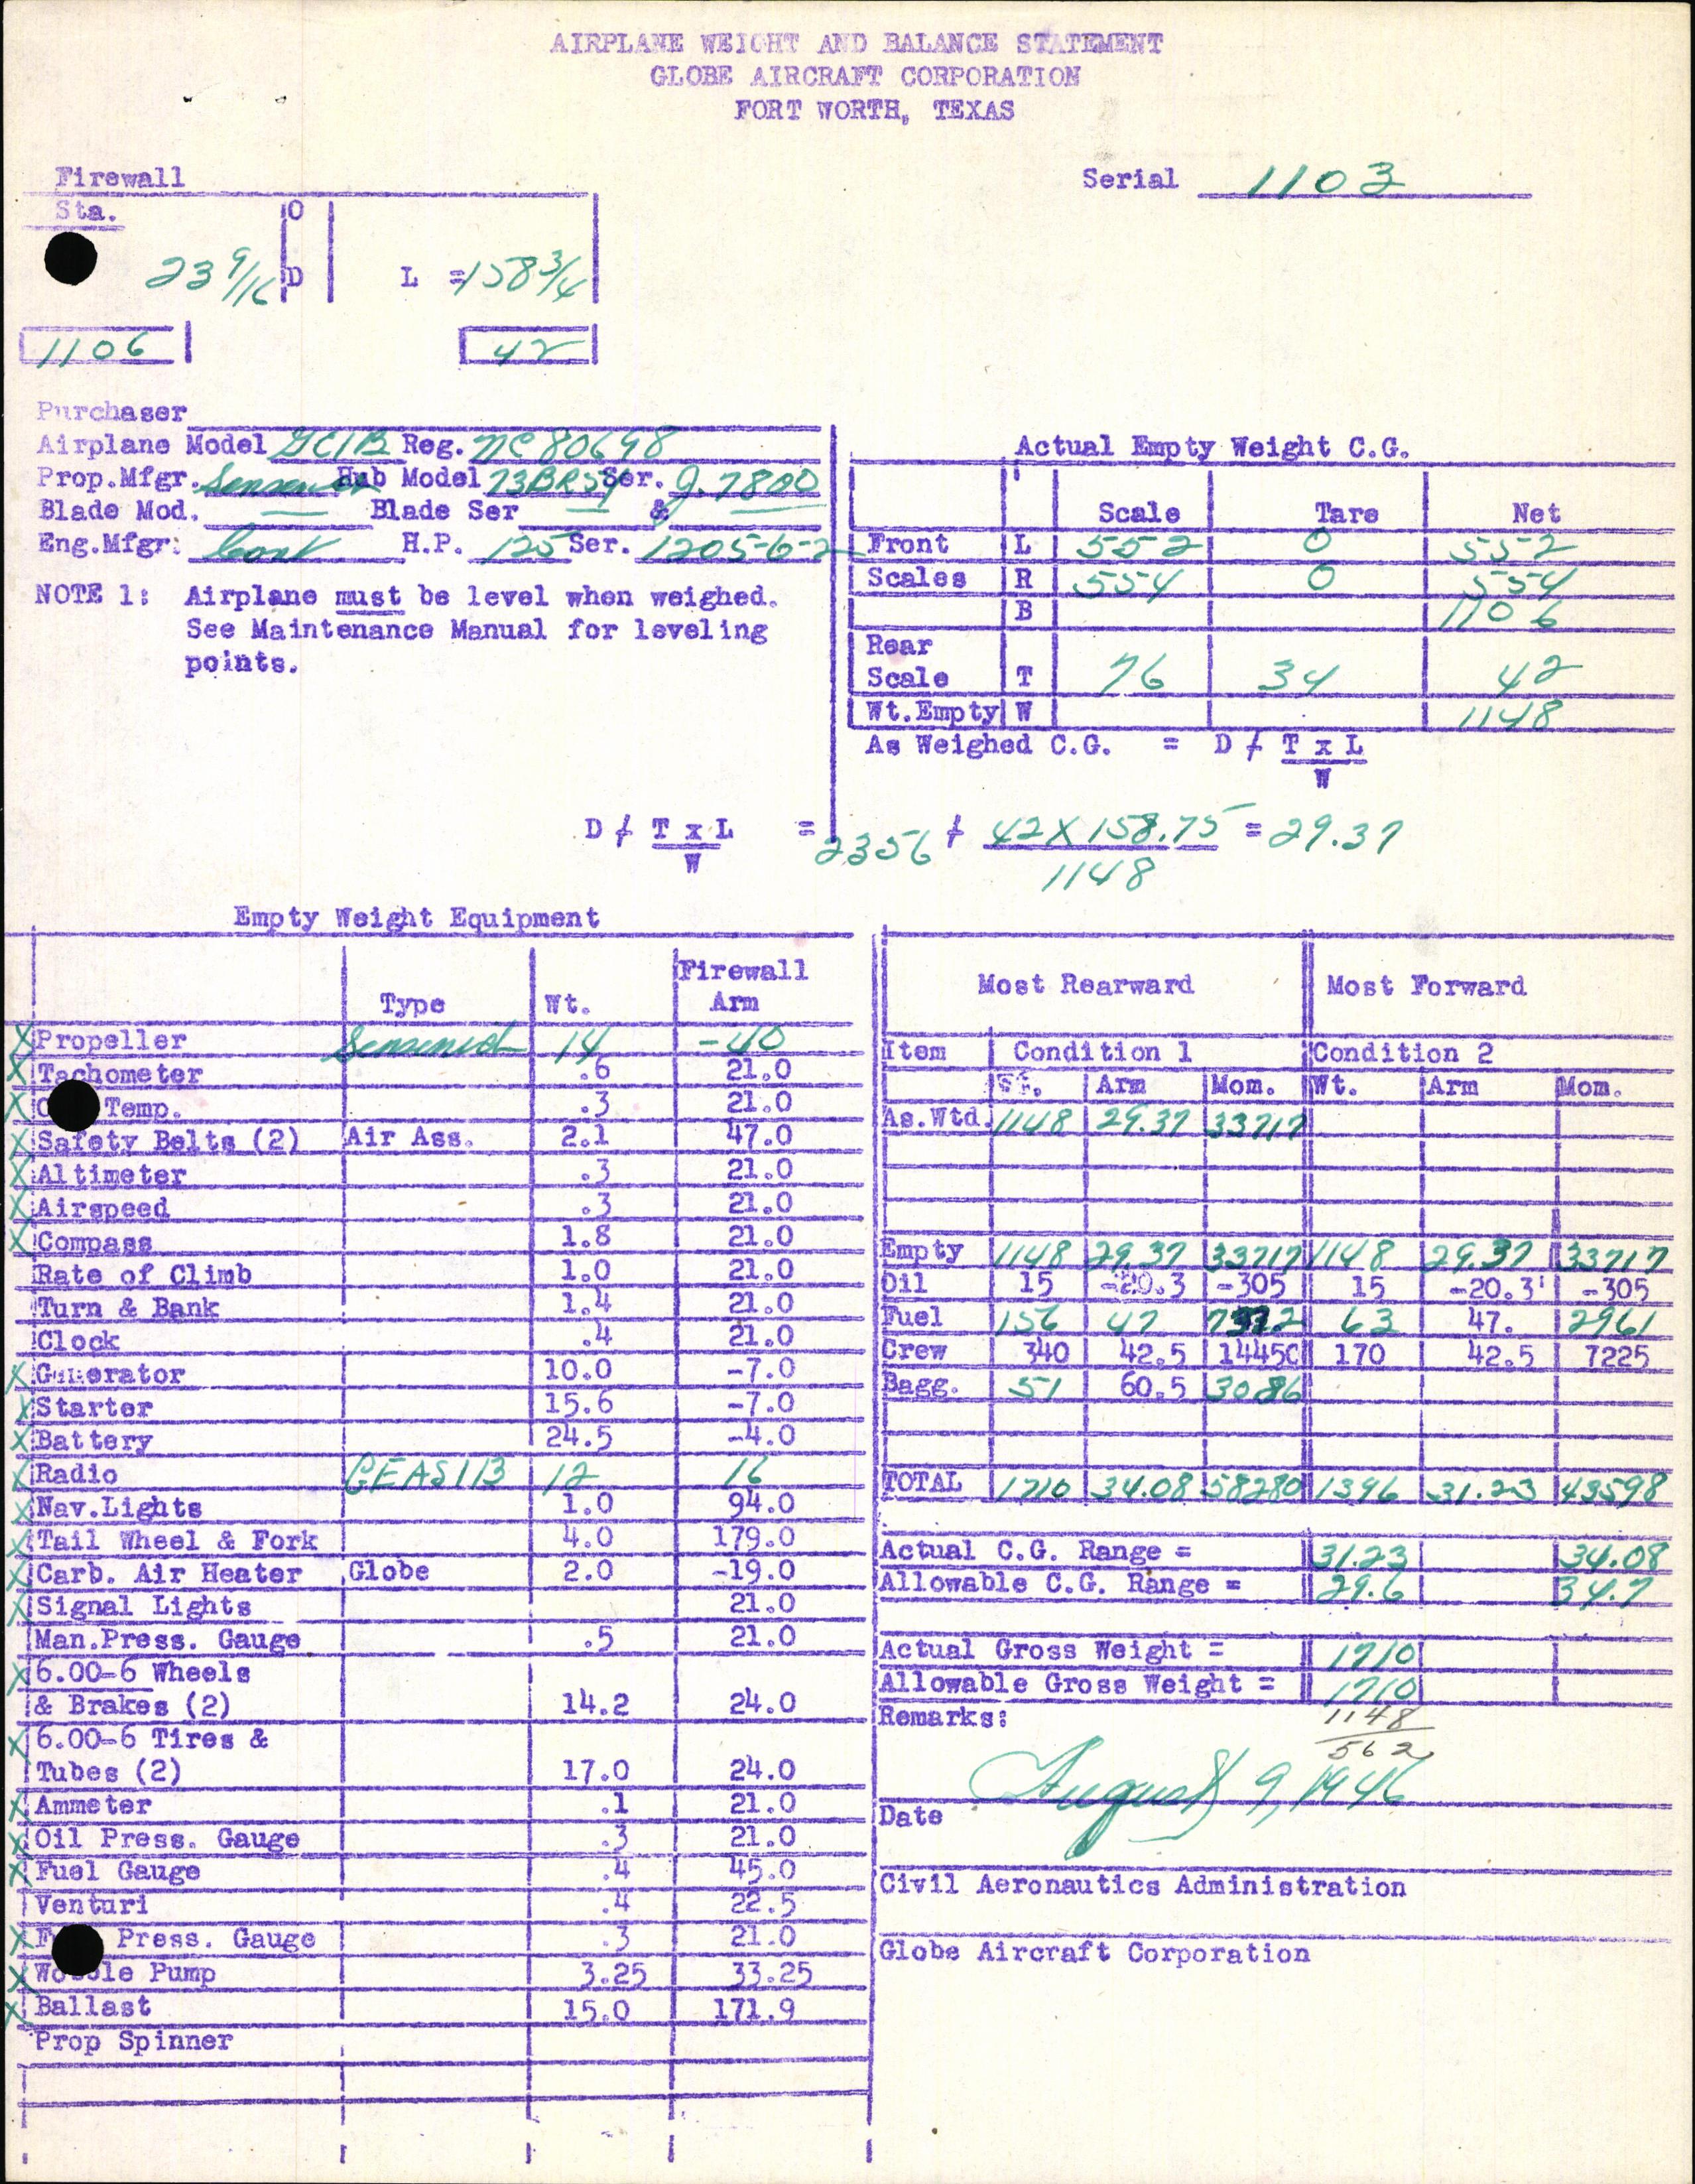 AIRPLANE WEIGHT AND BALANCE STATEMENT
GLOBE AIRCRAFT CORPORATION
FORT WORTH, TEXAS
Firewall
Serial 1103
Sta. O
23 9/16 D L = 158 3/4
1106 42
Purchaser
Airplane Model GC1B Reg. NC 80698
Prop.Mfgr. Hub Model 73BR54 Ser. J.7800
Blade Mod. — Blade Ser — & —
Eng.Mfgr: Cont H.P. 125 Ser. 1205-6-2
NOTE 1: Airplane must be level when weighed.
See Maintenance Manual for leveling
points.
Actual Empty Weight C.G.
Scale Tare Net
Front L 552 0 552
Scales R 554 0 554
B 1106
Rear
Scale T 76 34 42
Wt.Empty W 1148
As Weighed C.G. = D + T x L
W
D + T x L = 2356 + 42 X 158.75 = 29.37
W 1148
Empty Weight Equipment
Firewall
Type Wt. Arm
X Propeller Sensenich 14 -40
X Tachometer .6 21.0
X Temp. .3 21.0
X Safety Belts (2) Air Ass. 2.1 47.0
X Altimeter .3 21.0
X Airspeed .3 21.0
X Compass 1.8 21.0
Rate of Climb 1.0 21.0
Turn & Bank 1.4 21.0
Clock .4 21.0
X Generator 10.0 -7.0
X Starter 15.6 -7.0
X Battery 24.5 -4.0
X Radio GEAS1B 12 16
X Nav.Lights 1.0 94.0
X Tail Wheel & Fork 4.0 179.0
X Carb. Air Heater Globe 2.0 -19.0
X Signal Lights 21.0
Man.Press. Gauge .5 21.0
X 6.00-6 Wheels
& Brakes (2) 14.2 24.0
X 6.00-6 Tires &
Tubes (2) 17.0 24.0
X Ammeter .1 21.0
X Oil Press. Gauge .3 21.0
X Fuel Gauge .4 45.0
Venturi .4 22.5
X Press. Gauge .3 21.0
X Wobble Pump 3.25 33.25
X Ballast 15.0 171.9
Prop Spinner
Most Rearward Most Forward
Item Condition 1 Condition 2
Wt. Arm Mom. Wt. Arm Mom.
As.Wtd. 1148 29.37 33717
Empty 1148 29.37 33717 1148 29.37 33717
Oil 15 -20.3 -305 15 -20.3 -305
Fuel 156 47 63 47. 2961
Crew 340 42.5 14450 170 42.5 7225
Bagg. 51 60.5 3086
TOTAL 1710 34.08 58280 1396 31.23 43598
Actual C.G. Range = 31.23 34.08
Allowable C.G. Range = 29.6 34.7
Actual Gross Weight = 1710
Allowable Gross Weight = 1710
Remarks: 1148
562
August 9, 1946
Date
Civil Aeronautics Administration
Globe Aircraft Corporation